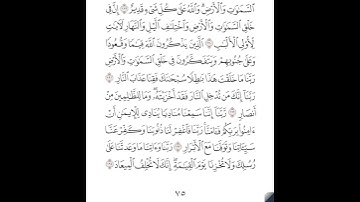 ٱلسَّمَٰوَٰتِ وَٱلۡأَرۡضِۗ وَٱللَّهُ عَلَىٰ كُلِّ شَيۡءٖ قَدِيرٌ ۝ إِنَّ فِي
خَلۡقِ ٱلسَّمَٰوَٰتِ وَٱلۡأَرۡضِ وَٱخۡتِلَٰفِ ٱلَّيۡلِ وَٱلنَّهَارِ لَأٓيَٰتٖ
لِّأُوْلِي ٱلۡأَلۡبَٰبِ ۝ ٱلَّذِينَ يَذۡكُرُونَ ٱللَّهَ قِيَٰمٗا وَقُعُودٗا
وَعَلَىٰ جُنُوبِهِمۡ وَيَتَفَكَّرُونَ فِي خَلۡقِ ٱلسَّمَٰوَٰتِ وَٱلۡأَرۡضِ
رَبَّنَا مَا خَلَقۡتَ هَٰذَا بَٰطِلٗا سُبۡحَٰنَكَ فَقِنَا عَذَابَ ٱلنَّارِ ۝
رَبَّنَآ إِنَّكَ مَن تُدۡخِلِ ٱلنَّارَ فَقَدۡ أَخۡزَيۡتَهُۥۖ وَمَا لِلظَّٰلِمِينَ مِنۡ
أَنصَارٖ ۝ رَّبَّنَآ إِنَّنَا سَمِعۡنَا مُنَادِيٗا يُنَادِي لِلۡإِيمَٰنِ أَنۡ
ءَامِنُواْ بِرَبِّكُمۡ فَـَٔامَنَّاۚ رَبَّنَا فَٱغۡفِرۡ لَنَا ذُنُوبَنَا وَكَفِّرۡ عَنَّا
سَيِّـَٔاتِنَا وَتَوَفَّنَا مَعَ ٱلۡأَبۡرَارِ ۝ رَبَّنَا وَءَاتِنَا مَا وَعَدتَّنَا عَلَىٰ
رُسُلِكَ وَلَا تُخۡزِنَا يَوۡمَ ٱلۡقِيَٰمَةِۖ إِنَّكَ لَا تُخۡلِفُ ٱلۡمِيعَادَ ۝
٧٥